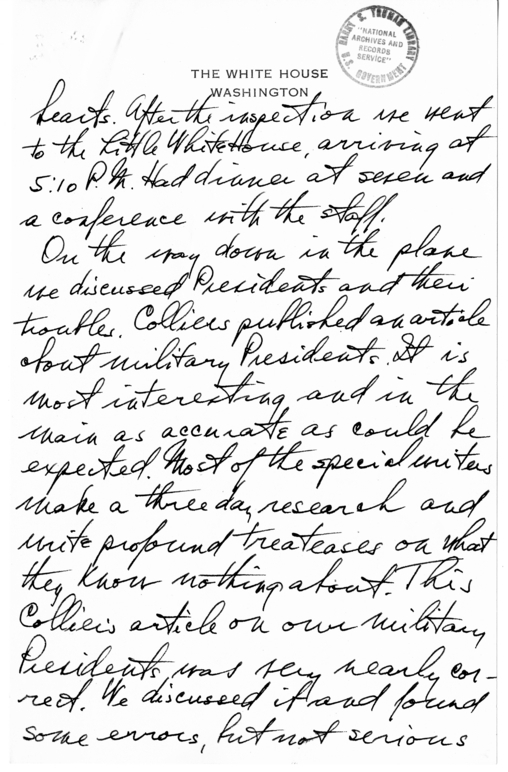 HARRY S. TRUMAN LIBRARY
"NATIONAL
ARCHIVES AND
RECORDS
SERVICE"
U.S. GOVERNMENT
THE WHITE HOUSE
WASHINGTON
hearts. After the inspection we went
to the Little White House, arriving at
5:10 P.M. Had dinner at seven and
a conference with the staff.
On the way down in the plane
we discussed Presidents and their
troubles. Colliers published an article
about military Presidents. It is
most interesting and in the
main as accurate as could be
expected. Most of the special writers
make a three day research and
write profound treateases on what
they know nothing about. This
Collier's article on our military
Presidents was very nearly cor-
rect. We discussed it and found
some errors, but not serious